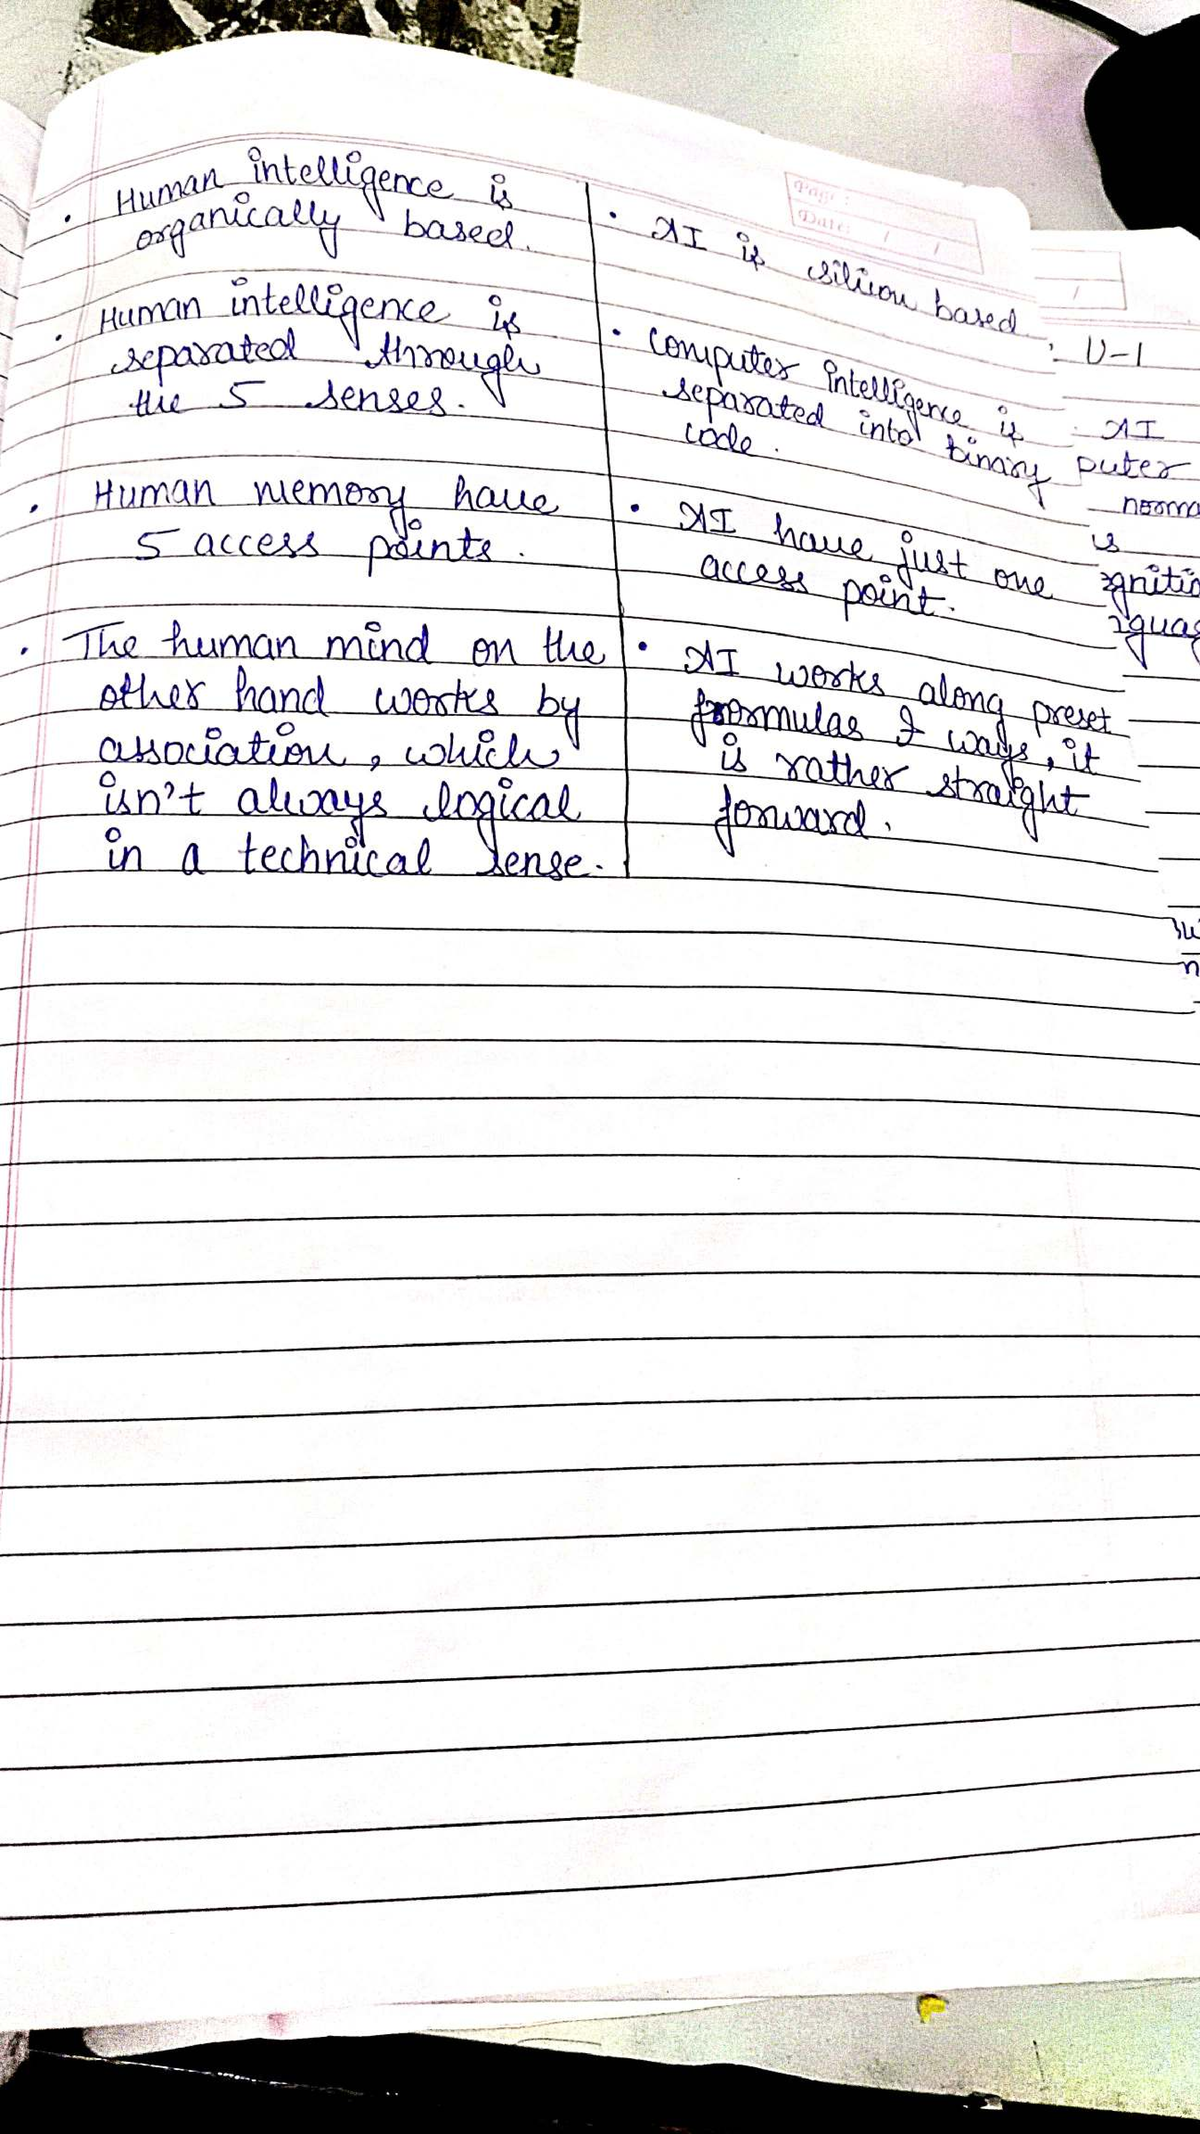 Page :
Date: / /
• Human intelligence is
organically based.
• Human intelligence is
separated through
the 5 senses.
• Human memory have
5 access points.
• The human mind on the
other hand works by
association, which
isn't always logical
in a technical sense.
• AI is silicon based
• Computer intelligence is
separated into binary
code.
• AI have just one
access point.
• AI works along preset
formulas & ways, it
is rather straight
forward.
U-1
AI
puter
is